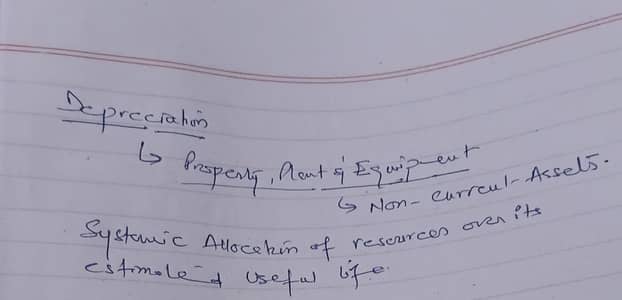 Depreciation
↳ Property, Plant & Equipment
↳ Non-Current-Assets.
Systemic Allocation of resources over its
estimated useful life.